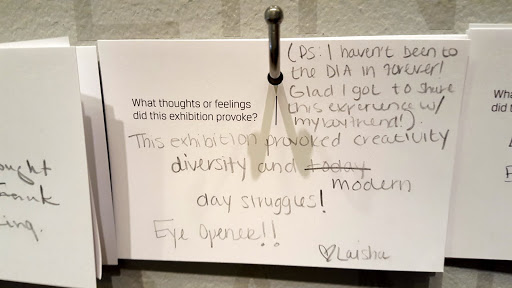 (PS: I haven't been to
the DIA in forever!
Glad I got to share
this experience w/
my boyfriend!).
What thoughts or feelings
did this exhibition provoke?
This exhibition provoked creativity
diversity and today
modern
day struggles!
Eye Opener!!
♡Laisha
ought
ing.
Wha
did t